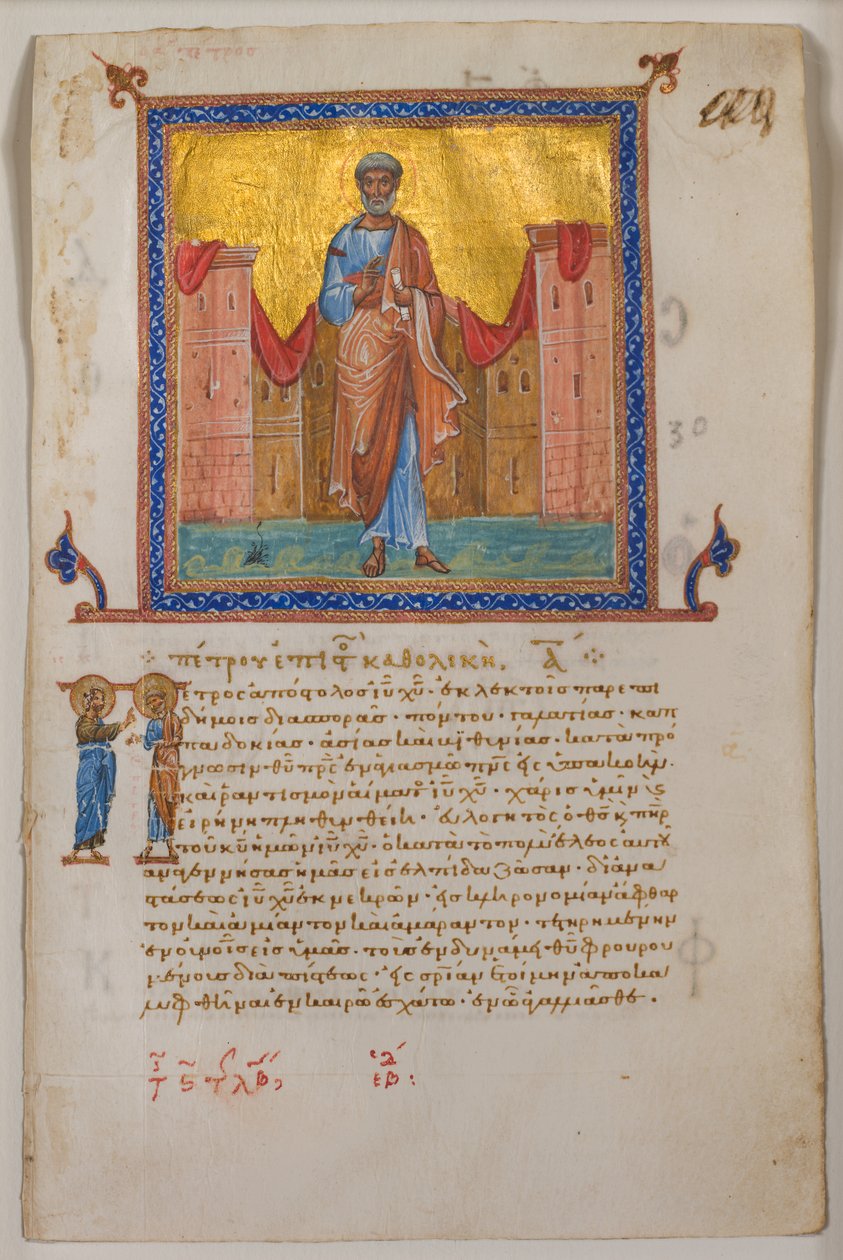 πέτρου ἐπιστο καθολικὴ, Α
Πετρος ἀπόστολος ἰυ χυ · ἐκλεκτοῖς παρεπι
δήμοις διασπορᾶς · πόντου · γαλατίας · καπ
παδοκίας · ἀσίας καὶ βιθυνίας · κατὰ πρό
γνωσιν θυ πρς ἐν ἁγιασμῶ πνς εἰς ὑπακοὴν ·
καὶ ῥαντισμὸν αἵματος ἰυ χυ · χάρις ὑμῖν κς
εἰρήνη πληθυνθείη · εὐλογητὸς ὁ θς κ πηρ
τοῦ κυ ἡμῶν ἰυ χυ · ὁ κατὰ τὸ πολὺ ἔλεος αὐτου
ἀναγεννήσας ἡμᾶς εἰς ἐλπίδα ζῶσαν · δι ἀνα
στάσεως ἰυ χυ ἐκ νεκρῶν · εἰς κληρονομίαν ἄφθαρ
τον καὶ ἀμίαντον καὶ ἀμάραντον · τετηρημένην
ἐν οὐνοῖς εἰς ὑμᾶς · τοὺς ἐν δυνάμει θυ φρουρου
μένους διὰ πίστεως · εἰς σρίαν ἑτοίμην ἀποκα
λυφθῆναι ἐν καιρῶ ἐσχάτω · ἐν ὧ ἀγαλλιᾶσθε ·
30